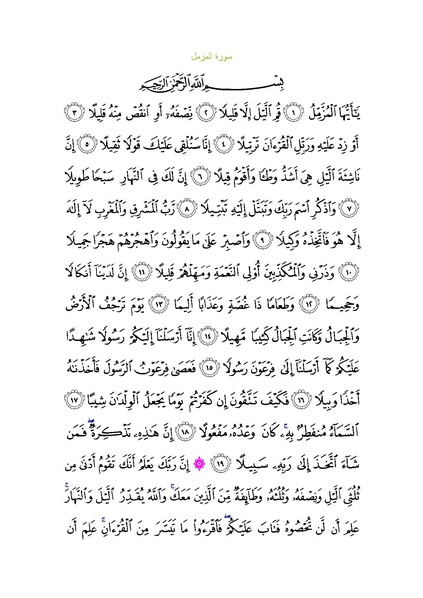 سورة المزمل
بِسْمِ ٱللَّهِ ٱلرَّحْمَٰنِ ٱلرَّحِيمِ
يَٰٓأَيُّهَا ٱلْمُزَّمِّلُ ﴿١﴾ قُمِ ٱلَّيْلَ إِلَّا قَلِيلًا ﴿٢﴾ نِّصْفَهُۥٓ أَوِ ٱنقُصْ مِنْهُ قَلِيلًا ﴿٣﴾
أَوْ زِدْ عَلَيْهِ وَرَتِّلِ ٱلْقُرْءَانَ تَرْتِيلًا ﴿٤﴾ إِنَّا سَنُلْقِى عَلَيْكَ قَوْلًا ثَقِيلًا ﴿٥﴾ إِنَّ
نَاشِئَةَ ٱلَّيْلِ هِىَ أَشَدُّ وَطْـًٔا وَأَقْوَمُ قِيلًا ﴿٦﴾ إِنَّ لَكَ فِى ٱلنَّهَارِ سَبْحًا طَوِيلًا
﴿٧﴾ وَٱذْكُرِ ٱسْمَ رَبِّكَ وَتَبَتَّلْ إِلَيْهِ تَبْتِيلًا ﴿٨﴾ رَّبُّ ٱلْمَشْرِقِ وَٱلْمَغْرِبِ لَآ إِلَٰهَ
إِلَّا هُوَ فَٱتَّخِذْهُ وَكِيلًا ﴿٩﴾ وَٱصْبِرْ عَلَىٰ مَا يَقُولُونَ وَٱهْجُرْهُمْ هَجْرًا جَمِيلًا
﴿١٠﴾ وَذَرْنِى وَٱلْمُكَذِّبِينَ أُو۟لِى ٱلنَّعْمَةِ وَمَهِّلْهُمْ قَلِيلًا ﴿١١﴾ إِنَّ لَدَيْنَآ أَنكَالًا
وَجَحِيمًا ﴿١٢﴾ وَطَعَامًا ذَا غُصَّةٍ وَعَذَابًا أَلِيمًا ﴿١٣﴾ يَوْمَ تَرْجُفُ ٱلْأَرْضُ
وَٱلْجِبَالُ وَكَانَتِ ٱلْجِبَالُ كَثِيبًا مَّهِيلًا ﴿١٤﴾ إِنَّآ أَرْسَلْنَآ إِلَيْكُمْ رَسُولًا شَٰهِدًا
عَلَيْكُمْ كَمَآ أَرْسَلْنَآ إِلَىٰ فِرْعَوْنَ رَسُولًا ﴿١٥﴾ فَعَصَىٰ فِرْعَوْنُ ٱلرَّسُولَ فَأَخَذْنَٰهُ
أَخْذًا وَبِيلًا ﴿١٦﴾ فَكَيْفَ تَتَّقُونَ إِن كَفَرْتُمْ يَوْمًا يَجْعَلُ ٱلْوِلْدَٰنَ شِيبًا ﴿١٧﴾
ٱلسَّمَآءُ مُنفَطِرٌۢ بِهِۦ ۚ كَانَ وَعْدُهُۥ مَفْعُولًا ﴿١٨﴾ إِنَّ هَٰذِهِۦ تَذْكِرَةٌ ۖ فَمَن
شَآءَ ٱتَّخَذَ إِلَىٰ رَبِّهِۦ سَبِيلًا ﴿١٩﴾ ۞ إِنَّ رَبَّكَ يَعْلَمُ أَنَّكَ تَقُومُ أَدْنَىٰ مِن
ثُلُثَىِ ٱلَّيْلِ وَنِصْفَهُۥ وَثُلُثَهُۥ وَطَآئِفَةٌ مِّنَ ٱلَّذِينَ مَعَكَ ۚ وَٱللَّهُ يُقَدِّرُ ٱلَّيْلَ وَٱلنَّهَارَ ۚ
عَلِمَ أَن لَّن تُحْصُوهُ فَتَابَ عَلَيْكُمْ ۖ فَٱقْرَءُوا۟ مَا تَيَسَّرَ مِنَ ٱلْقُرْءَانِ ۚ عَلِمَ أَن